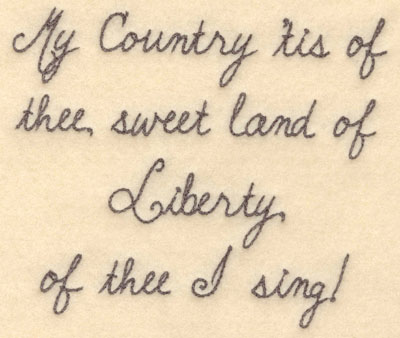 My Country 'tis of
thee, sweet land of
Liberty,
of thee I sing!